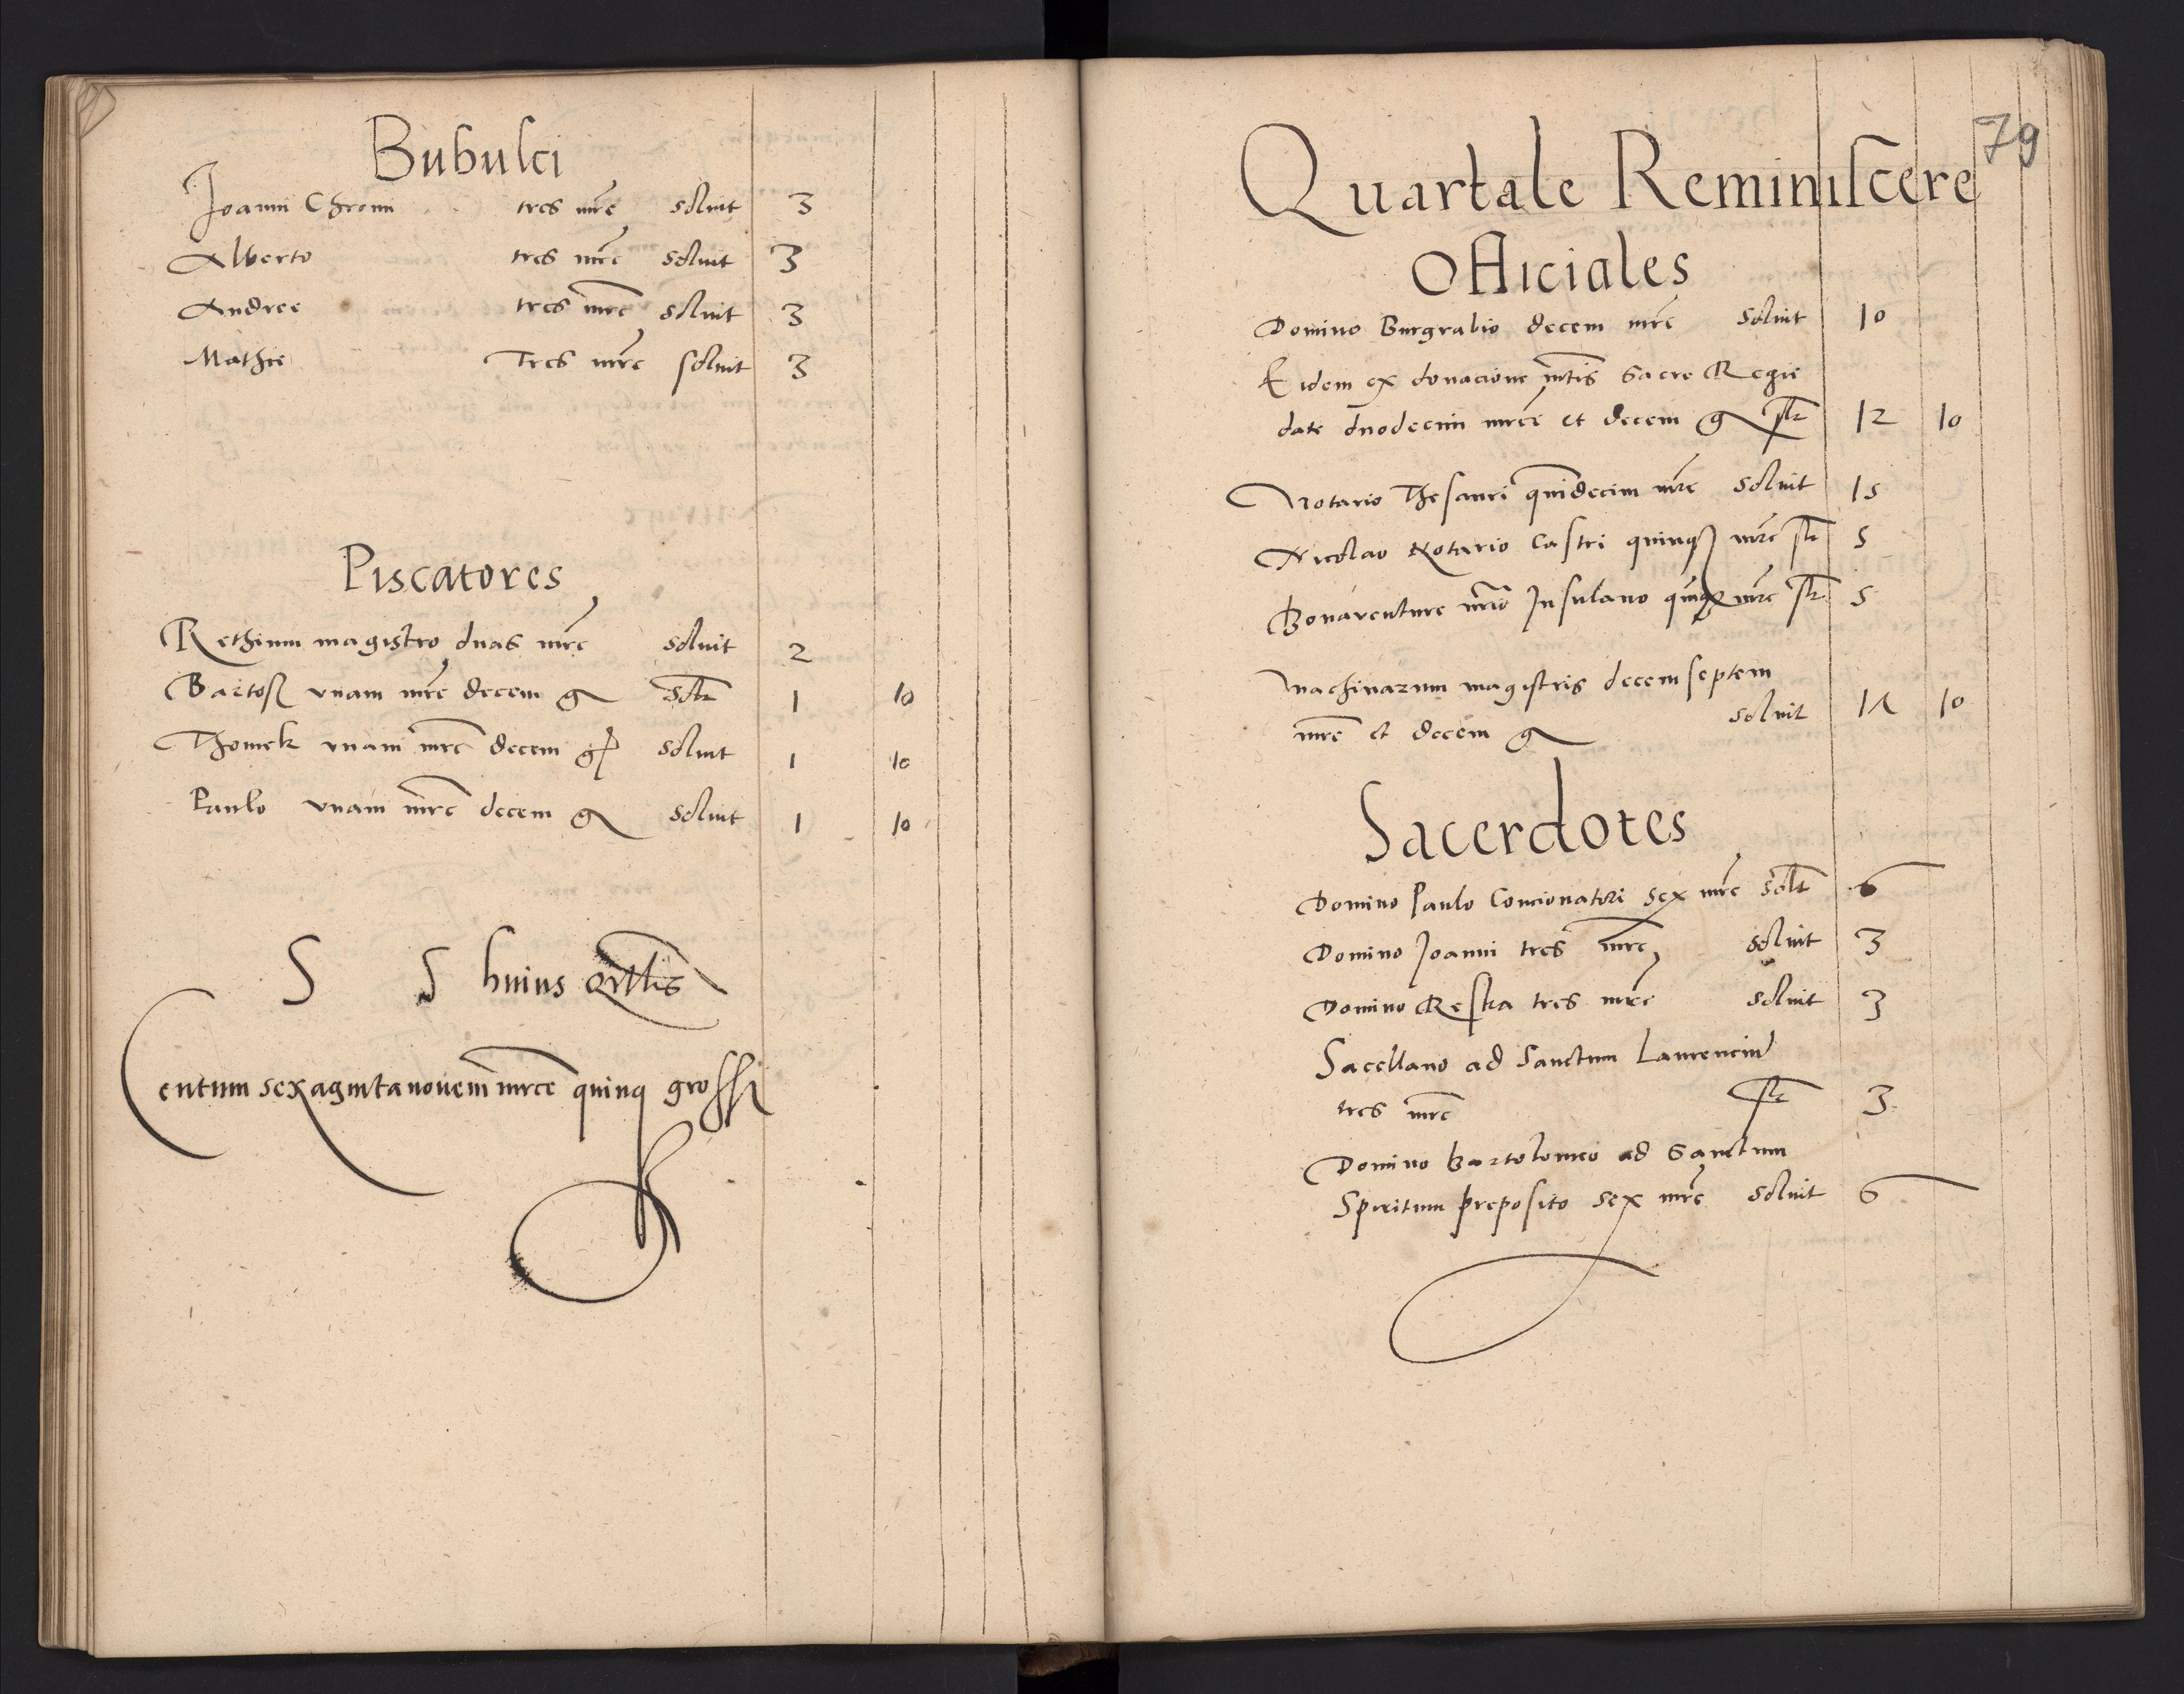 Bubulci
Joanni Chromi tres mrce soluit 3
Alberto tres mrce soluit 3
Andree tres mrce soluit 3
Mathie Tres mrce soluit 3
Piscatores
Rethium magistro duas mrce soluit 2
Bartoss vnam mrce decem g solt 1 10
Thomek vnam mrce decem g soluit 1 10
Paulo vnam mrce decem g soluit 1 10
S S huius qrtlis
Centum sexaginta nouem mrce quinq grossi
79
Quartale Reminiscere
Officiales
Domino Burgrabio decem mrce soluit 10
Eidem ex donacione mtis Sacre Regie
date duodecim mrce et decem g slt 12 10
Notario Thesauri quindecim mrce soluit 15
Nicolao Notario Castri quinq mrce slt 5
Bonauenture nrio Insulano quinq mrce slt 5
Machinarum magistris decem septem
mrce et decem g soluit 17 10
Sacerdotes
Domino Paulo Concionatori sex mrce solt 6
Domino Joanni tres mrce soluit 3
Domino Reska tres mrce soluit 3
Sacellano ad Sanctum Laurenciu
tres mrce slt 3
Domino Bartolomeo ad Sanctum
Spiritum preposito sex mrce soluit 6